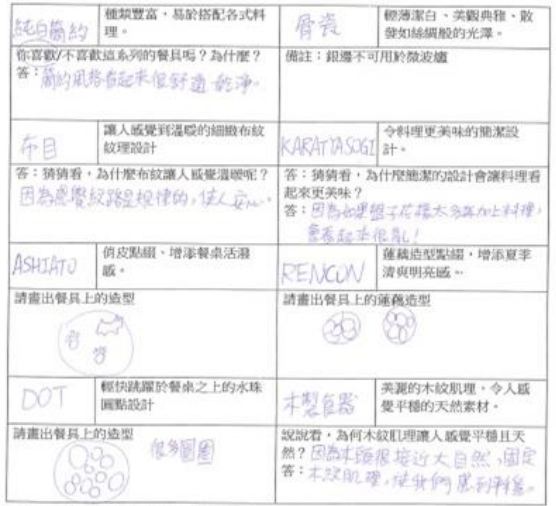 純白簡約
種類豐富、易於搭配各式料
理。
骨瓷
輕薄潔白、美觀典雅、散
發如絲綢般的光澤。
你喜歡/不喜歡這系列的餐具嗎？為什麼？
答：簡約風格看起來很舒適、乾淨。
備註：銀邊不可用於微波爐
布目
讓人感覺到溫暖的細緻布紋
紋理設計
KARATYASOGI
令料理更美味的簡潔設
計。
答：猜猜看，為什麼布紋讓人感覺溫暖呢？
因為感覺紋路是規律的，使人安心。
答：猜猜看，為什麼簡潔的設計會讓料理看
起來更美味？
答：因為如果盤子花樣太多再加上料理，
會看起來很亂！
ASHIATO
俏皮點綴、增添餐桌活潑
感。
RENCON
蓮藕造型點綴，增添夏季
清爽明亮感。
請畫出餐具上的造型
請畫出餐具上的蓮藕造型
DOT
輕快跳躍於餐桌之上的水珠
圓點設計
木製食器
美麗的木紋肌理，令人感
覺平穩的天然素材。
請畫出餐具上的造型
很多圓圈
說說看，為何木紋肌理讓人感覺平穩且天
然？因為木頭很接近大自然，固定
答：木紋肌理，使我們感到平穩。